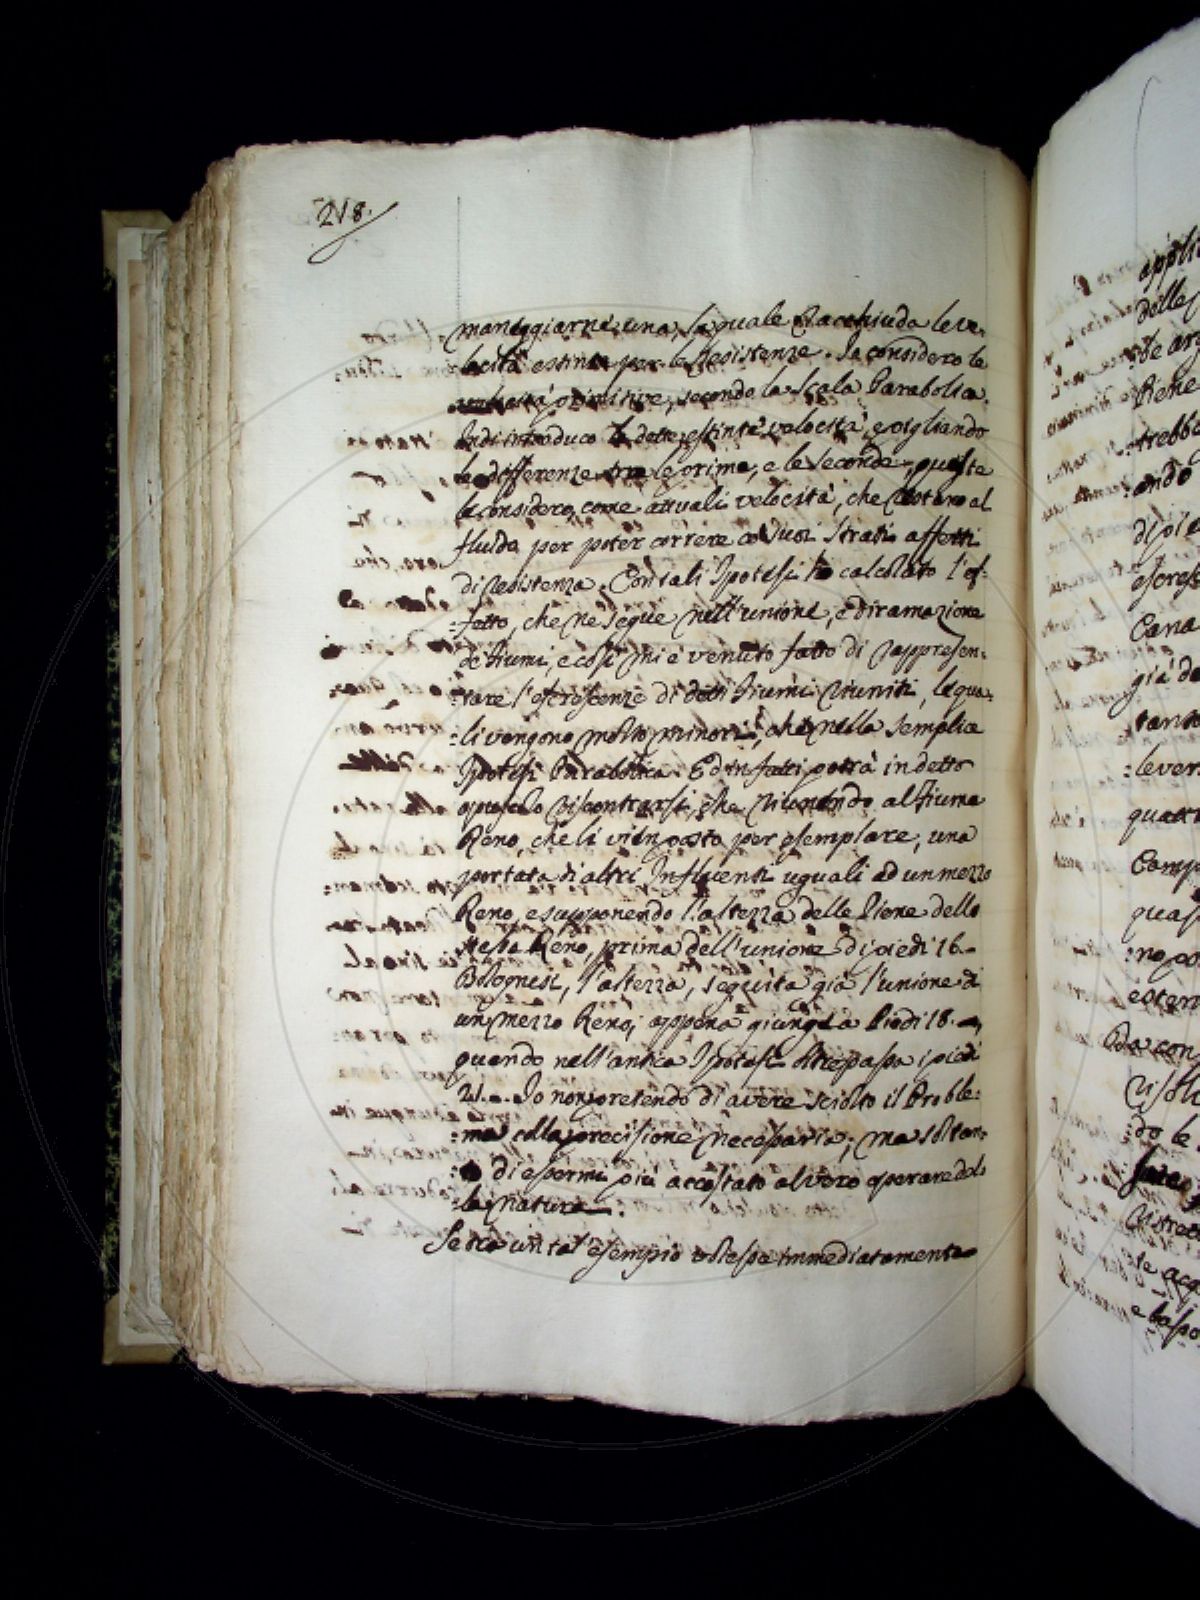 218.
maneggiarne una, la quale racchiuda le ve-
:locità estinte per le resistenze. Io considero le
velocità primitive, secondo la Scala Parabolica.
Indi introduco le dette estinte velocità, e pigliando
le differenze tra le prime, e le seconde, queste
le considero, come attuali velocità, che restano al
fluido per poter correre co' suoi strati affetti
di resistenza. Con tali Ipotesi ho calcolato l'ef-
:fetto, che ne segue nell'unione, e diramazione
de' fiumi, e così mi è venuto fatto di rappresen-
:tare l'escrescenze di detti fiumi riuniti, le qua-
:li vengono molto minori, che nella semplice
Ipotesi Parabolica. Ed infatti potrà in detto
opuscolo riscontrarsi, che unendo al fiume
Reno, che li vien posto per esemplare, una
portata di altri Influenti uguali ad un mezzo
Reno, e supponendo l'altezza delle Piene dello
stesso Reno, prima dell'unione di piedi 16.
Bolognesi, l'altezza, seguita già l'unione di
un mezzo Reno, appena giunge a Piedi 18.
quando nell'antica Ipotesi oltrepassa i piedi
21. Io non pretendo di avere sciolto il Proble-
:ma colla precisione necessaria; ma soltan-
di essermi più accostato al vero operare del-
:la natura.
Se da un tal esempio volesse immediatamente
appli
delle
te ar
Piene
:trebb
:ando
di poi
escres
Cana
già de
tant
:lever
quatt
Camp
quas
:no po
esten
Da con
risol
:do le
ristre
te acq
e bass